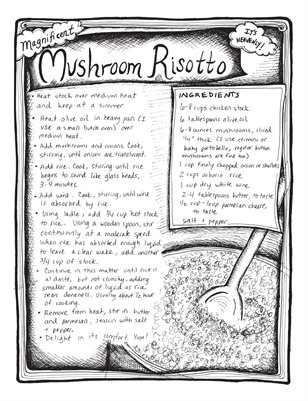 Magnificent
IT'S
HEAVENLY!
Mushroom Risotto
• Heat stock over medium heat
and keep at a simmer
• Heat olive oil in heavy pan (I
use a small Dutch oven) over
medium heat.
• Add mushrooms and onions. Cook,
stirring, until onions are translucent.
• Add rice. Cook, stirring until rice
begins to sound like glass beads,
3-4 minutes
• Add wine. Cook, stirring, until wine
is absorbed by rice.
• Using ladle, add 3/4 cup hot stock
to rice. Using a wooden spoon, stir
continuously at a moderate speed.
When rice has absorbed enough liquid
to leave a clear wake, add another
3/4 cup of stock.
• Continue in this matter until rice is
al dante, but not crunchy, adding
smaller amounts of liquid as rice
nears doneness. Usually about 1/2 hour
of cooking.
• Remove from heat, stir in butter
and parmesan, season with salt
+ pepper.
• Delight in its comfort. Yum!
INGREDIENTS
6-8 cups chicken stock
6 tablespoons olive oil
6-8 ounces mushrooms, sliced
1/4" thick (I use crimini or
baby portobello, regular button
mushrooms are fine too)
1 cup finely chopped onion or shallots
2 cups arborio rice
1 cup dry white wine
2-4 tablespoons butter, to taste
1/2 cup - 1 cup parmesan cheese,
to taste
Salt + pepper